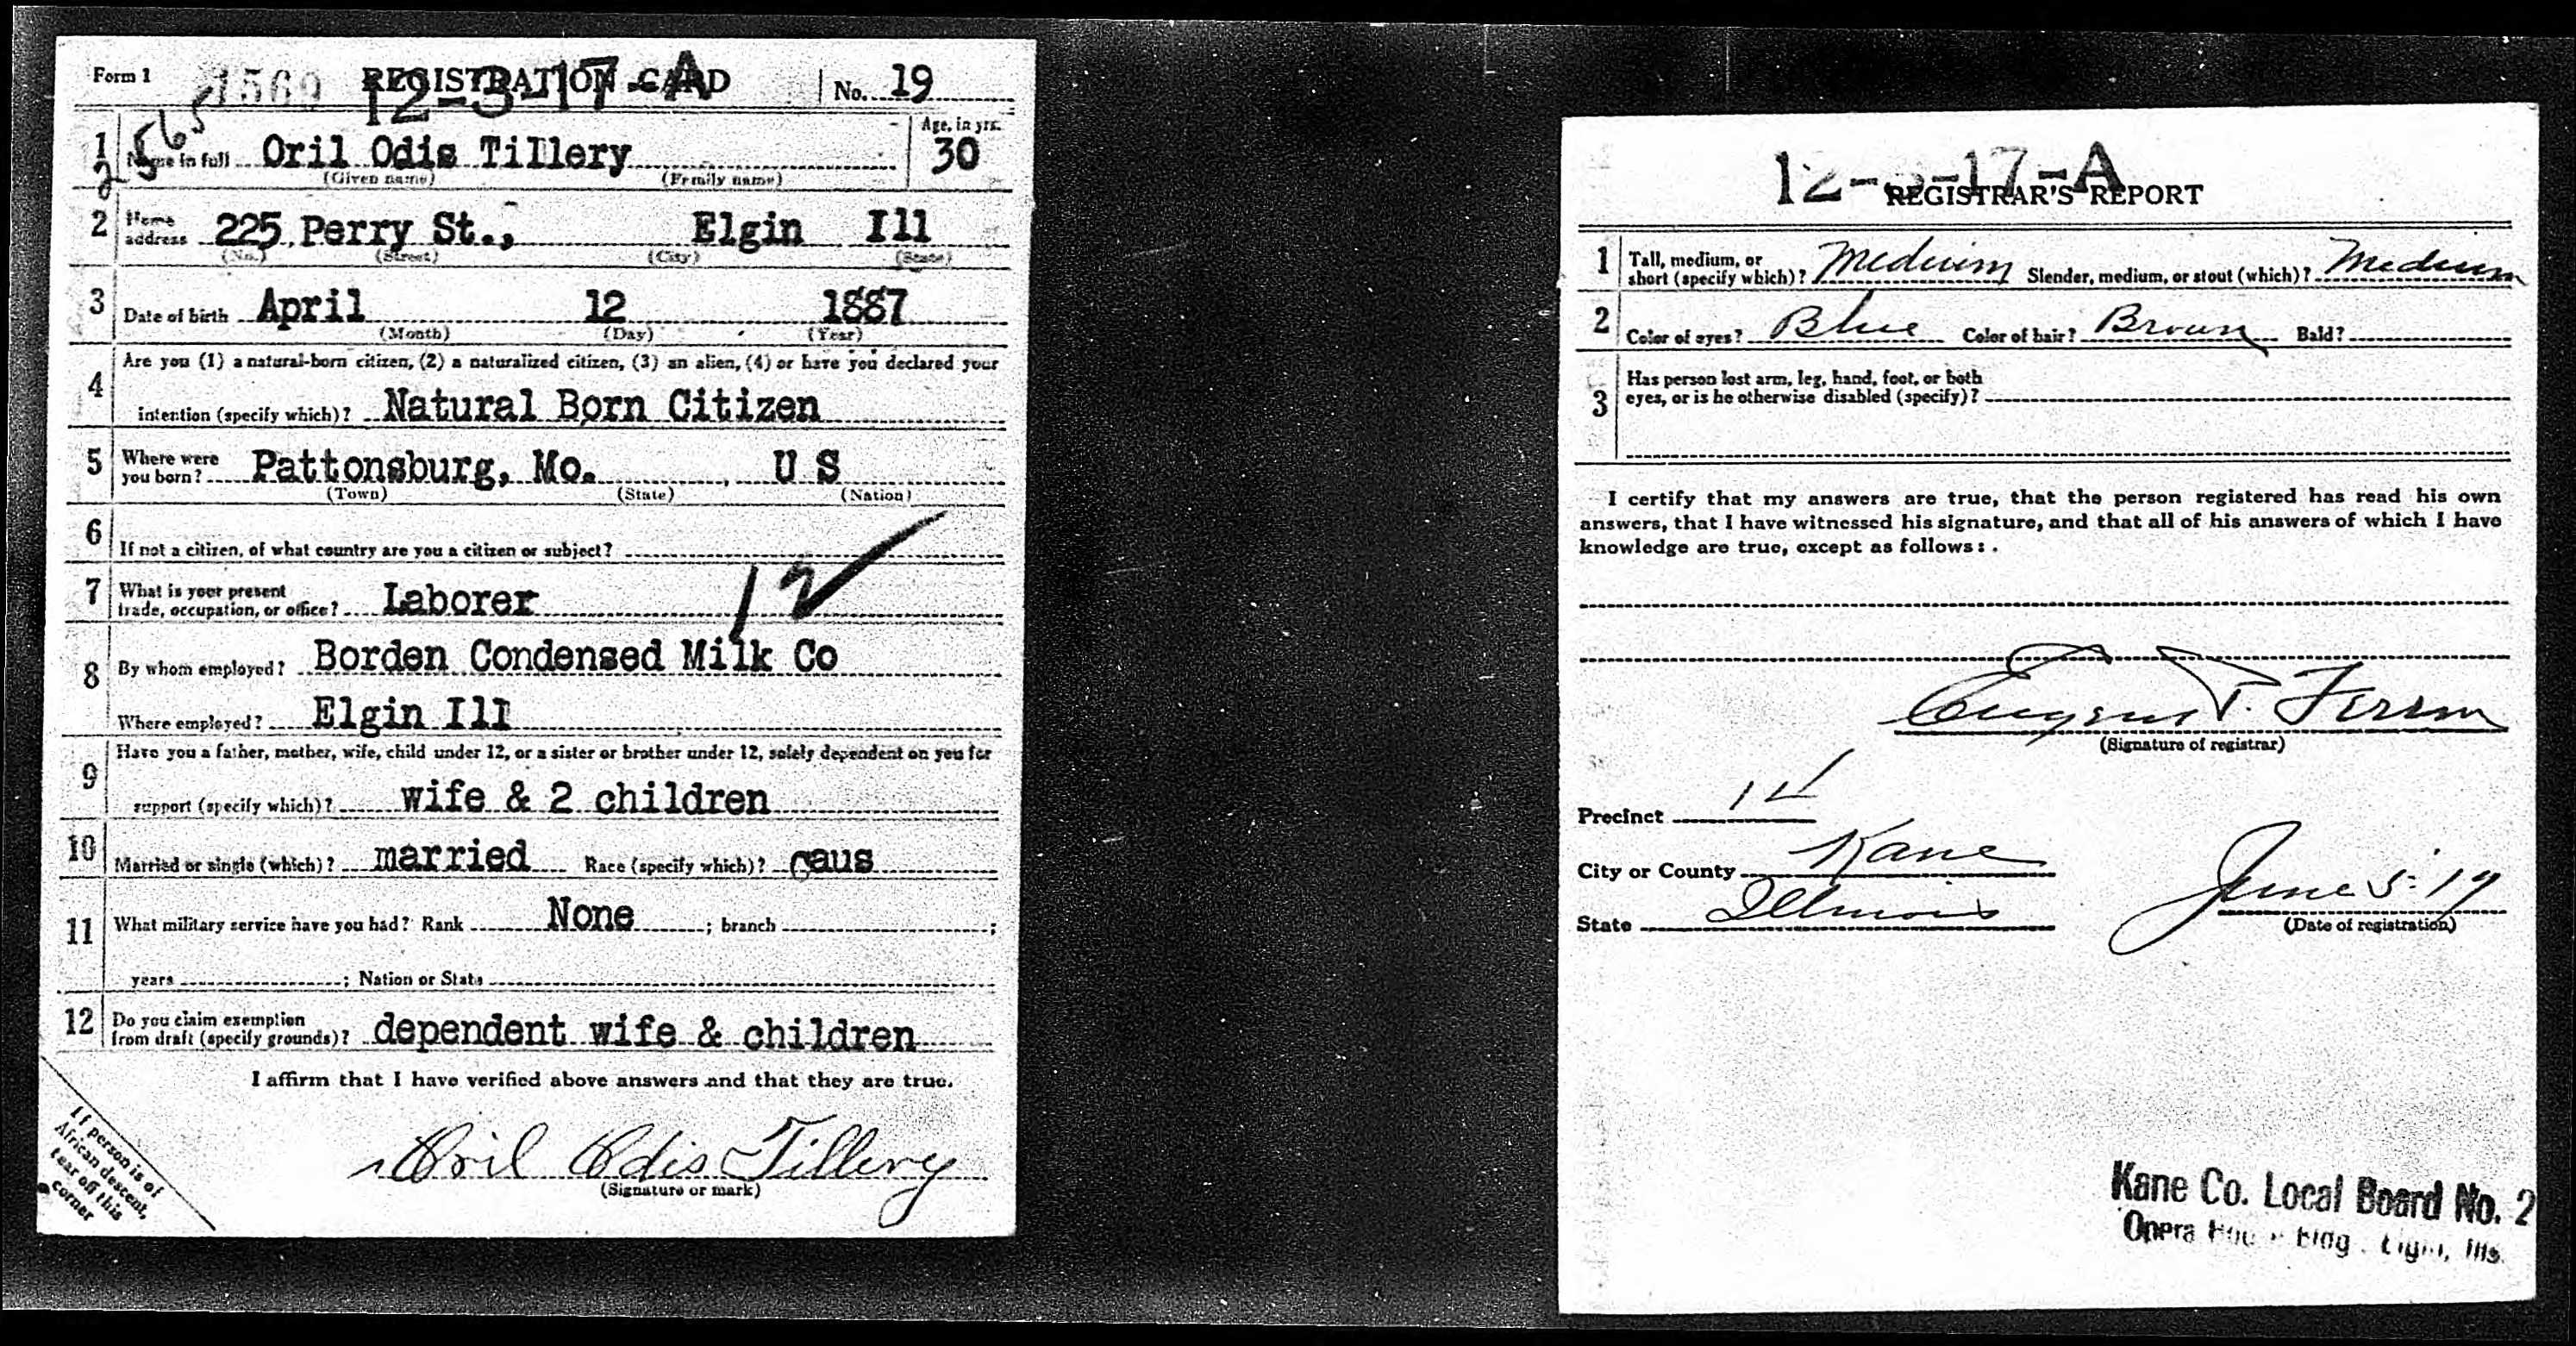 Form 1 1569 REGISTRATION CARD No. 19
12-3-17-A
565
1 Name in full Oril Odis Tillery Age, in yrs. 30
(Given name) (Family name)
2 Home address 225 Perry St., Elgin Ill
(No.) (Street) (City) (State)
3 Date of birth April 12 1887
(Month) (Day) (Year)
4 Are you (1) a natural-born citizen, (2) a naturalized citizen, (3) an alien, (4) or have you declared your
intention (specify which)? Natural Born Citizen
5 Where were you born? Pattonsburg, Mo. U S
(Town) (State) (Nation)
6 If not a citizen, of what country are you a citizen or subject?
7 What is your present
trade, occupation, or office? Laborer
8 By whom employed? Borden Condensed Milk Co
Where employed? Elgin Ill
9 Have you a father, mother, wife, child under 12, or a sister or brother under 12, solely dependent on you for
support (specify which)? wife & 2 children
10 Married or single (which)? married Race (specify which)? caus
11 What military service have you had? Rank None ; branch ;
years ; Nation or State
12 Do you claim exemption
from draft (specify grounds)? dependent wife & children
I affirm that I have verified above answers and that they are true.
Oril Odis Tillery
(Signature or mark)
If person is of
African descent,
tear off this
corner
12-3-17-A
REGISTRAR'S REPORT
1 Tall, medium, or
short (specify which)? Medium Slender, medium, or stout (which)? Medium
2 Color of eyes? Blue Color of hair? Brown Bald?
3 Has person lost arm, leg, hand, foot, or both
eyes, or is he otherwise disabled (specify)?
I certify that my answers are true, that the person registered has read his own
answers, that I have witnessed his signature, and that all of his answers of which I have
knowledge are true, except as follows:
Eugene T.
(Signature of registrar)
Precinct
City or County Kane
State Illinois
June 5-17
(Date of registration)
Kane Co. Local Board No. 2
Opera House Bldg. Elgin, Ills.